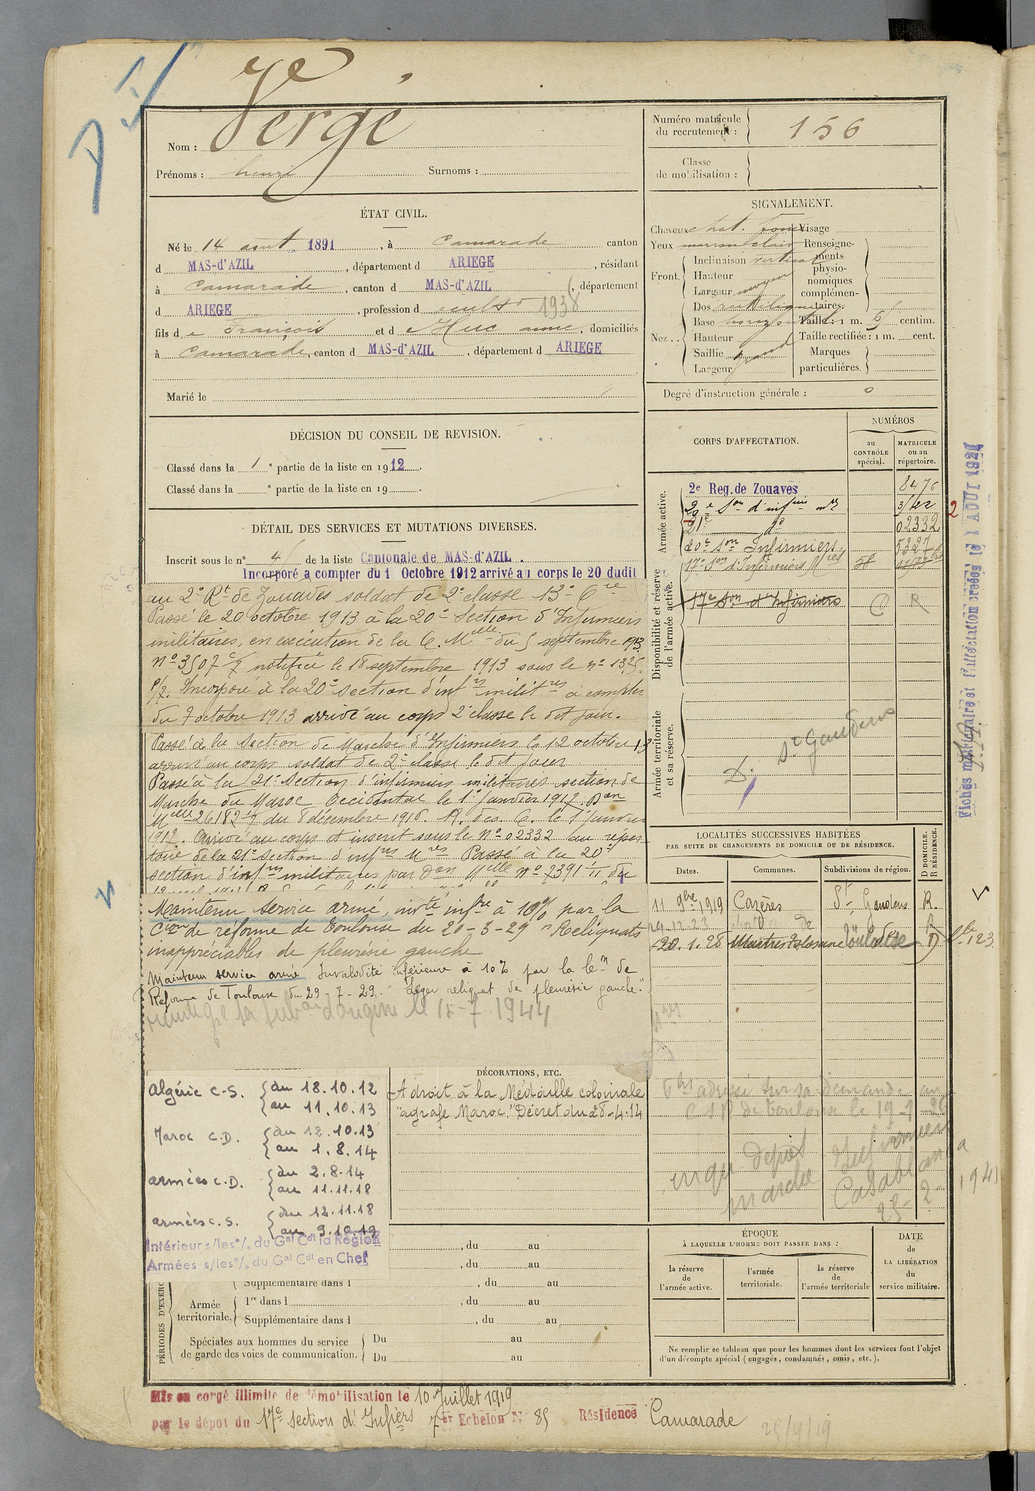 Vergé
Nom :
Prénoms : henri Surnoms :
Numéro matricule
du recrutement : 156
Classe
de mobilisation :
ÉTAT CIVIL.
Né le 14 aout 1891, à Camarade canton
d MAS-d'AZIL, département d ARIEGE, résidant
à Camarade, canton d MAS-d'AZIL, département
d ARIEGE, profession de cultr 1938
fils de François et de Huc anne, domiciliés
à Camarade, canton d MAS-d'AZIL, département d ARIEGE
Marié le
SIGNALEMENT.
Cheveux chat. foncé Visage
Yeux marron clair Renseigne-
ments
physio-
nomiques
complémen-
taires:
Front. Inclinaison vertical
Hauteur
Largeur moyen
Nez.. Dos rectiligne
Base horizontal Taille: 1 m. 61 centim.
Hauteur Taille rectifiée : 1 m. cent.
Saillie grand Marques
Largeur particulières.
Degré d'instruction générale : 0
DÉCISION DU CONSEIL DE REVISION.
Classé dans la 1e partie de la liste en 1912.
Classé dans la e partie de la liste en 19
DÉTAIL DES SERVICES ET MUTATIONS DIVERSES.
Inscrit sous le n° 4 de la liste Cantonale de MAS-d'AZIL.
Incorporé à compter du 1 Octobre 1912 arrivé au corps le 20 dudit
au 2e Rt de Zouaves soldat de 2e classe 13e Cie
Passé le 20 octobre 1913 à la 20e Section d'Infirmiers
militaires, en exécution de la C. Melle du 5 septembre 1913
N° 3507 notifiée le 18 septembre 1913 sous le n°
Incorporé à la 20e section d'infrs militres à compter
du 7 octobre 1913 arrivé au corps 2e classe le dit jour.
Passé à la Section de Marche d'Infirmiers le 12 octobre 13
arrivé au corps soldat de 2e classe le dit jour
Passé à la 21e Section d'infirmiers militaires section de
Marche du Maroc Occidental le 1er Janvier 1917. Don
Melle 26182 du 8 décembre 1916. R. des C. le 1er janvier
1917. Arrivé au corps et inscrit sous le N° 02332 au réper
toire de la 21e section d'infres Mres Passé à la 20e
section d'infres militaires par Don Melle n° 7391 du
Maintenu service armé, invté infre à 10% par la
Cion de réforme de Toulouse du 20-3-29 "Reliquats
inappréciables de pleurésie gauche
Maintenu service armé Invalidité inférieure à 10% par la Con de
Réforme de Toulouse du 29-7-29. léger reliquat de pleurésie gauche.
le 15-7 1944
CORPS D'AFFECTATION.
NUMÉROS
au
CONTRÔLE
spécial.
MATRICULE
ou au
répertoire.
Armée active.
2e Reg. de Zouaves 8476
2e Son d'infiers 3/22 2
21e do 02332
20e Son Infirmiers 5327
17e Son d'Infirmiers Mres
Disponibilité et réserve
de l'armée active.
17e Son d'Infirmiers
Armée territoriale
et sa réserve.
D. St Gaudens
Fiches matriculaire et d'affectation créées le 1 AOUT 1927
LOCALITÉS SUCCESSIVES HABITÉES
PAR SUITE DE CHANGEMENTS DE DOMICILE OU DE RÉSIDENCE.
D DOMICILE.
R RÉSIDENCE.
Dates. Communes. Subdivisions de région.
11 9bre 1919 Cazères St Gaudens R.
29-12-23
20.1.28 Toulouse D
123
adressé sur sa demande au
de Toulouse le 19-1-26
Dépôt Infirmiers
marche Casablanca
25-2- 1941
algérie C.S. du 18.10.12
au 11.10.13
Maroc C.D. du 12.10.13
au 1.8.14
armées C.D. du 2.8.14
au 11.11.18
armées C.S. du 12.11.18
au 9.10.19
Intérieur s/les o/. du Gal Cdt la Région
Armées s/les o/. du Gal Cdt en Chef
DÉCORATIONS, ETC.
A droit à la Médaille coloniale
"agrafe Maroc." Décret du 28-4-14
PÉRIODES D'EXERC
, du au
, du au
Supplémentaire dans l , du au
Armée
territoriale. 1re dans l , du au
Supplémentaire dans l , du au
Spéciales aux hommes du service
de garde des voies de communication. Du au
Du au
ÉPOQUE
À LAQUELLE L'HOMME DOIT PASSER DANS :
la réserve
de
l'armée active.
l'armée
territoriale.
la réserve
de
l'armée territoriale
DATE
de
LA LIBÉRATION
du
service militaire.
Ne remplir ce tableau que pour les hommes dont les services font l'objet
d'un décompte spécial (engagés, condamnés, omis, etc.).
Mis en congé illimité de démobilisation le 10 Juillet 1919
par le dépôt du 17e section d'Infiers 7er Echelon N° 85 Résidence Camarade
25/9/19